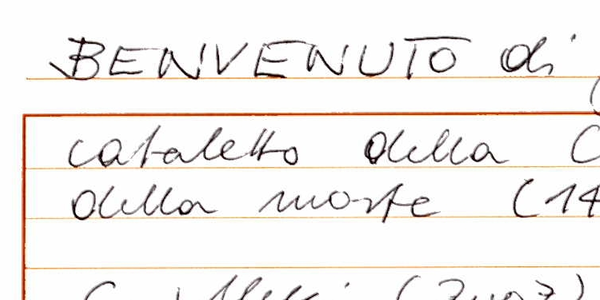 BENVENUTO di
cataletto della C
della morte (14